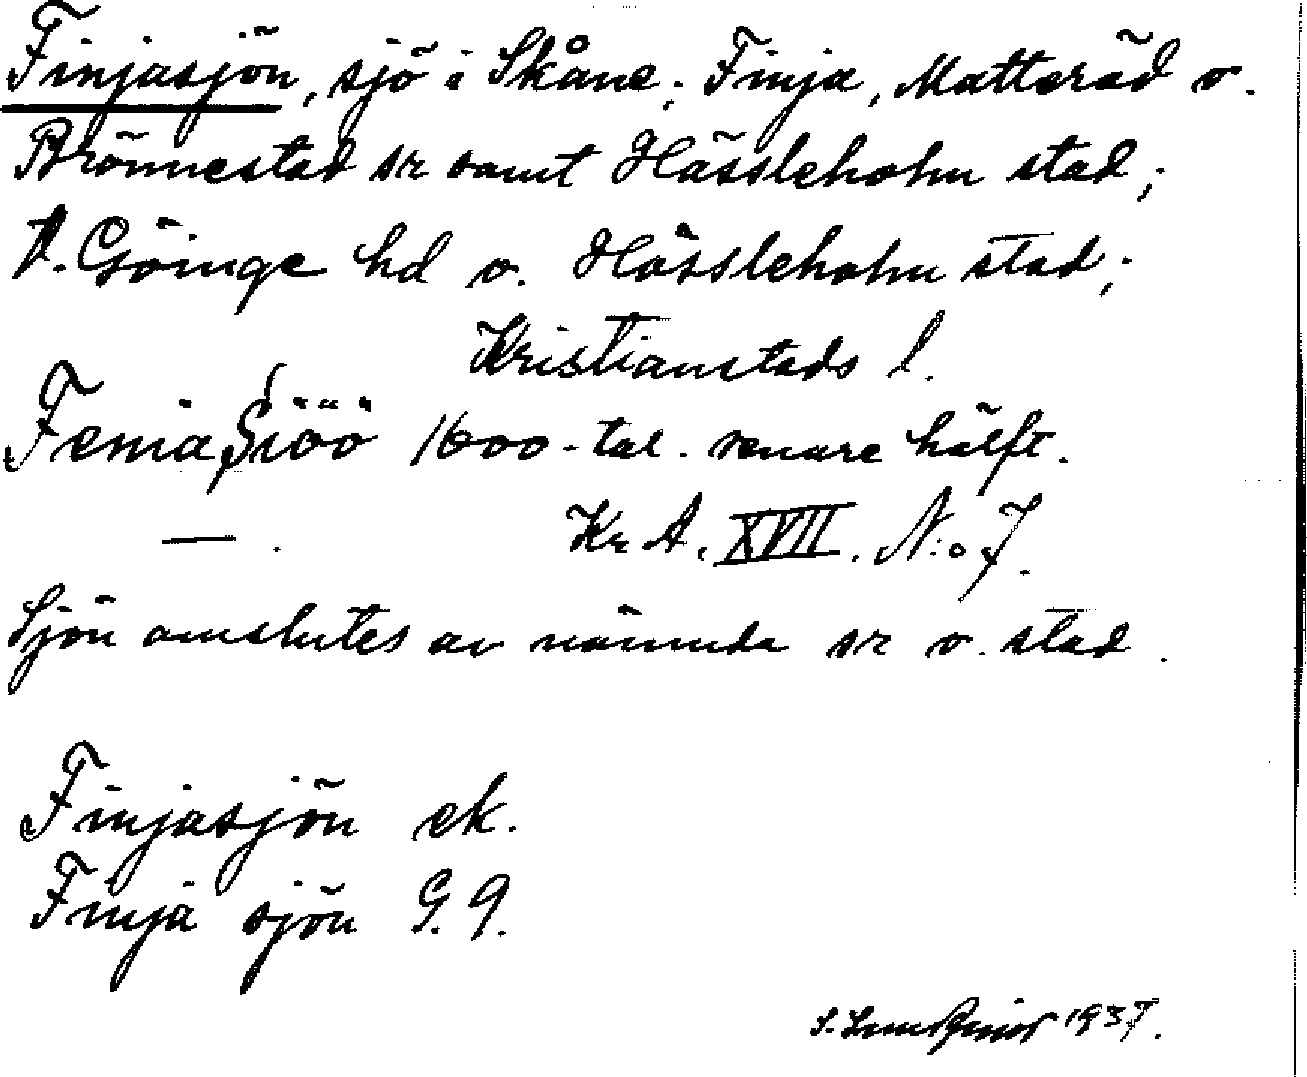 Finjasjön, sjö i Skåne; Finja, Matteröd o.
Brönnestad sr samt Hässleholm stad;
V. Göinge hd o. Hässleholm stad;
Kristianstads l.
Fenia Siöö 1600-tal. senare hälft.
— . Kr A. XVII. N:o 7.
Sjön omslutes av nämnda sr o. stad.
Finjasjön ek.
Finja sjön G. 9.
1937.